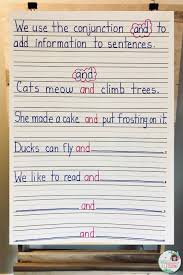 We use the conjunction and to
add information to sentences.
and
Cats meow and climb trees.
She made a cake and put frosting on it.
Ducks can fly and
We like to read and
and
and